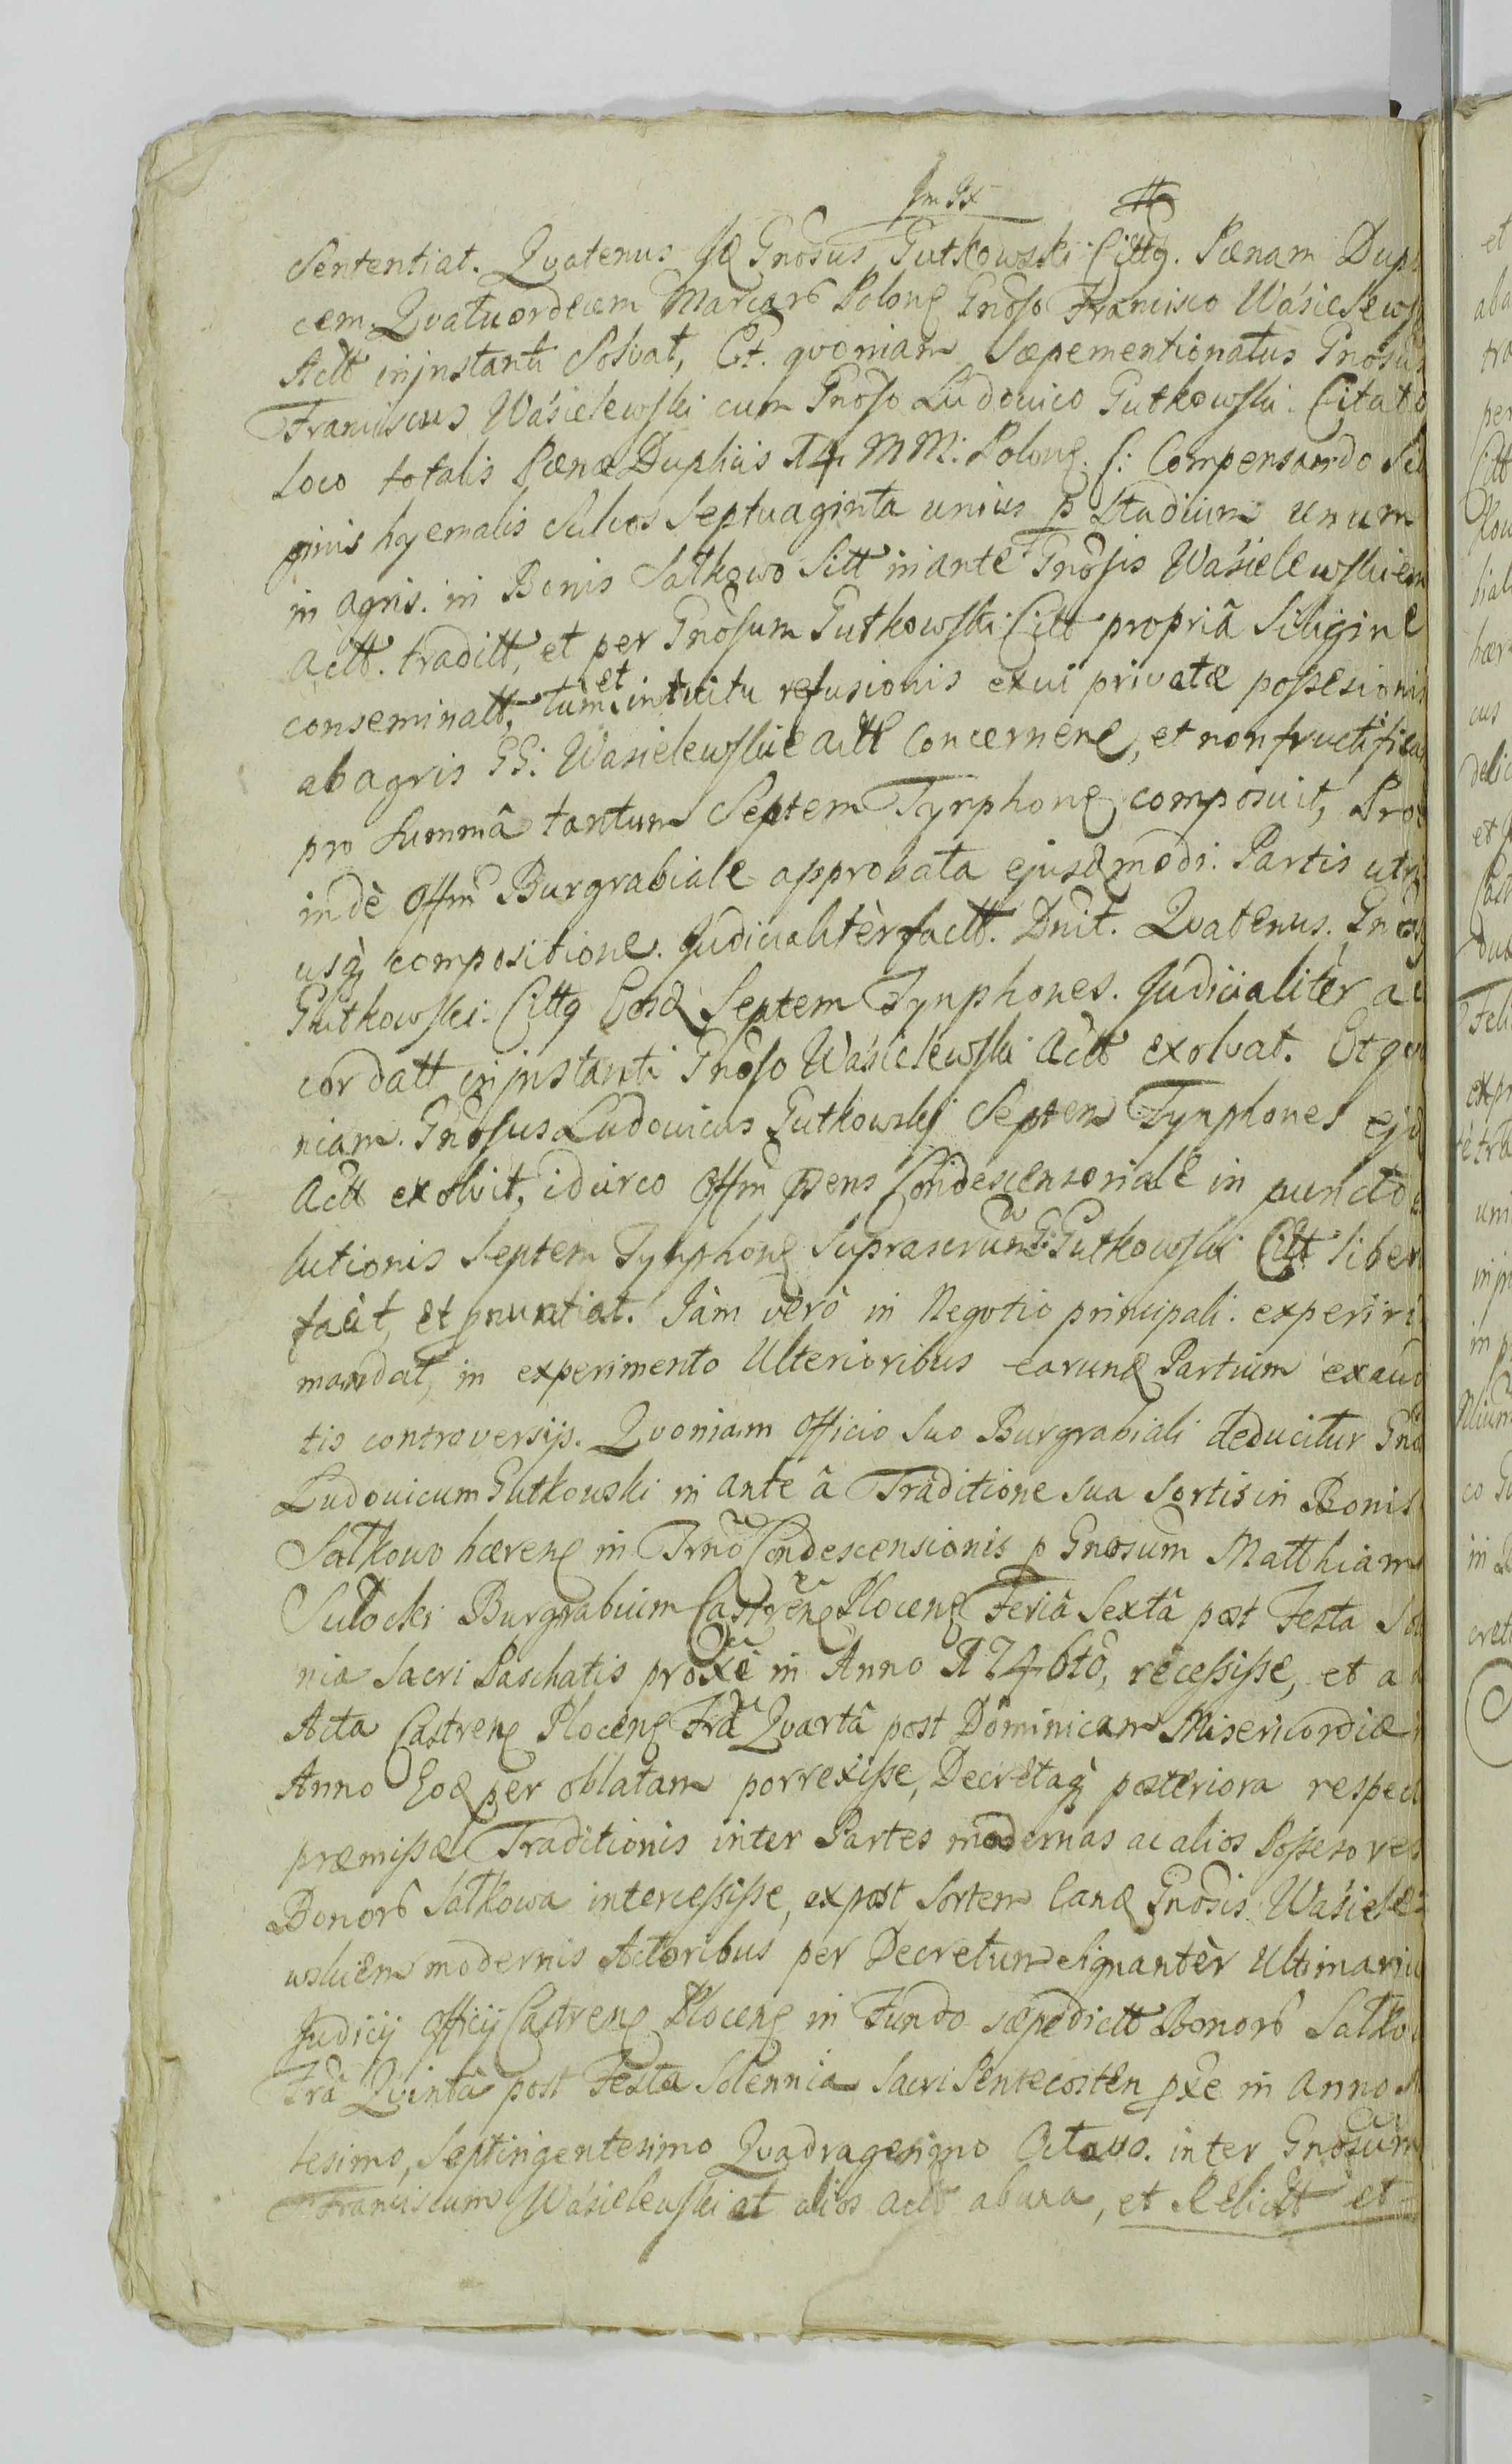 Sententiat. Qvatenus Gnosus Gutkowski Cittg. Pænam Dupl
cem Qvatuordecem Marcar Polong Gnoso Francisco Wasielewsk
Actt in instanti Solvat, Et. qvoniam Sæpementionatus Gnosus
Franciscus Wasielewski cum Gnoso Ludovico Gutkowski Citato
loco totalis Pænæ Duplicis 14 MM: Polong. f: Compensando Sili
ginis hyemalis Sulcos Septuaginta unius p Stadium unum
in agris. in Bonis Sałkowo Sitt in ante Gnosis Wasielewskiem
actt. traditt, et per Gnosum Gutkowski Citt propriâ Siligine
conseminatt, tùm et intuitu refusionis exui privatæ possesionis
ab agris GG: Wasielewskie actt Concernene, et non fructifica
pro Summâ tantum Septem Tynphong composuit, Pro
indè Offm Burgrabiale approbata ejusdmodi. Partis utri
usq compositione. Judicialitèr factt. Dnit. Qvatenus. Gnos
Gutkowski Cittg Eosd Septem Tynphones. Judicialitèr ac
cordatt in instanti Gnoso Wasielewski Actt exolvat. Et qvo
niam. Gnosus Ludovicus Gutkowski Septem Tynphones ejd
Actt exolvit, idcirco Offm pens Condescensoriale in puncto
lutionis Septem Tynphong Suprascrum G: Gutkowski Citt liber
facit, et pnuntiat. Jàm verò in Negotio principali. experiri
mandat, in experimento Ulterioribus earund Partium exaudi
tis controversijs. Qvoniam Officio Suo Burgrabiali deducitur Gno
Ludovicum Gutkowski in ante â Traditione sua Sortis in Bonis
Sałkowo hæreng in Trno Condescensionis p Gnosum Matthiam
Sulocki Burgrabium Castreng Ploceng Feriâ Sextâ post Festa So
nia Sacri Paschatis proxe in Anno 1746to, recessisse, et a
Acta Castreng Ploceng Frâ Qvartâ post Dominicam Misericordiæ
Anno Eod per oblatam porrexisse, Decretaq posteriora respec
præmissæ Traditionis inter Partes modernas ac alios Possesores
Bonor Sałkowa intercessisse, expost Sortem eand Gnosis Wasiele
wskiem modernis Actoribus per Decretum Signantèr Ultimariu
Judicij Officij Castreng Ploceng in Fundo sæpedictt Bonor Sałko
Frâ Qvintâ post Festa Solennia Sacri Pentecosten pxe in Anno M
lesimo, Septingentesimo Qvadragesimo Octavo. inter Gnosum
Franciscum Wasielewski at alios actt abuna, et Relictt et